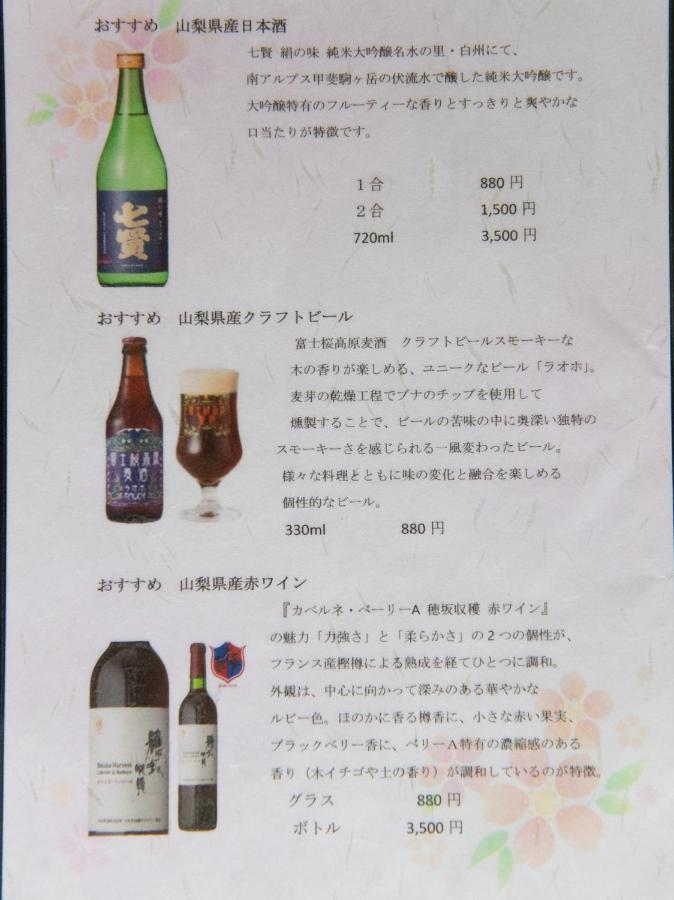 おすすめ　山梨県産日本酒
七賢 絹の味 純米大吟醸名水の里・白州にて、
南アルプス甲斐駒ヶ岳の伏流水で醸した純米大吟醸です。
大吟醸特有のフルーティーな香りとすっきりと爽やかな
口当たりが特徴です。
七賢
１合　880 円
２合　1,500 円
720ml　3,500 円
おすすめ　山梨県産クラフトビール
富士桜高原麦酒　クラフトビールスモーキーな
木の香りが楽しめる、ユニークなビール「ラオホ」。
麦芽の乾燥工程でブナのチップを使用して
燻製することで、ビールの苦味の中に奥深い独特の
スモーキーさを感じられる一風変わったビール。
様々な料理とともに味の変化と融合を楽しめる
個性的なビール。
富士桜高原
麦酒
330ml　880 円
おすすめ　山梨県産赤ワイン
『カベルネ・ベーリーA 穂坂収穫 赤ワイン』
の魅力「力強さ」と「柔らかさ」の２つの個性が、
フランス産樫樽による熟成を経てひとつに調和。
外観は、中心に向かって深みのある華やかな
ルビー色。ほのかに香る樽香に、小さな赤い果実、
ブラックベリー香に、ベリーＡ特有の濃縮感のある
香り（木イチゴや土の香り）が調和しているのが特徴。
グラス　880 円
ボトル　3,500 円